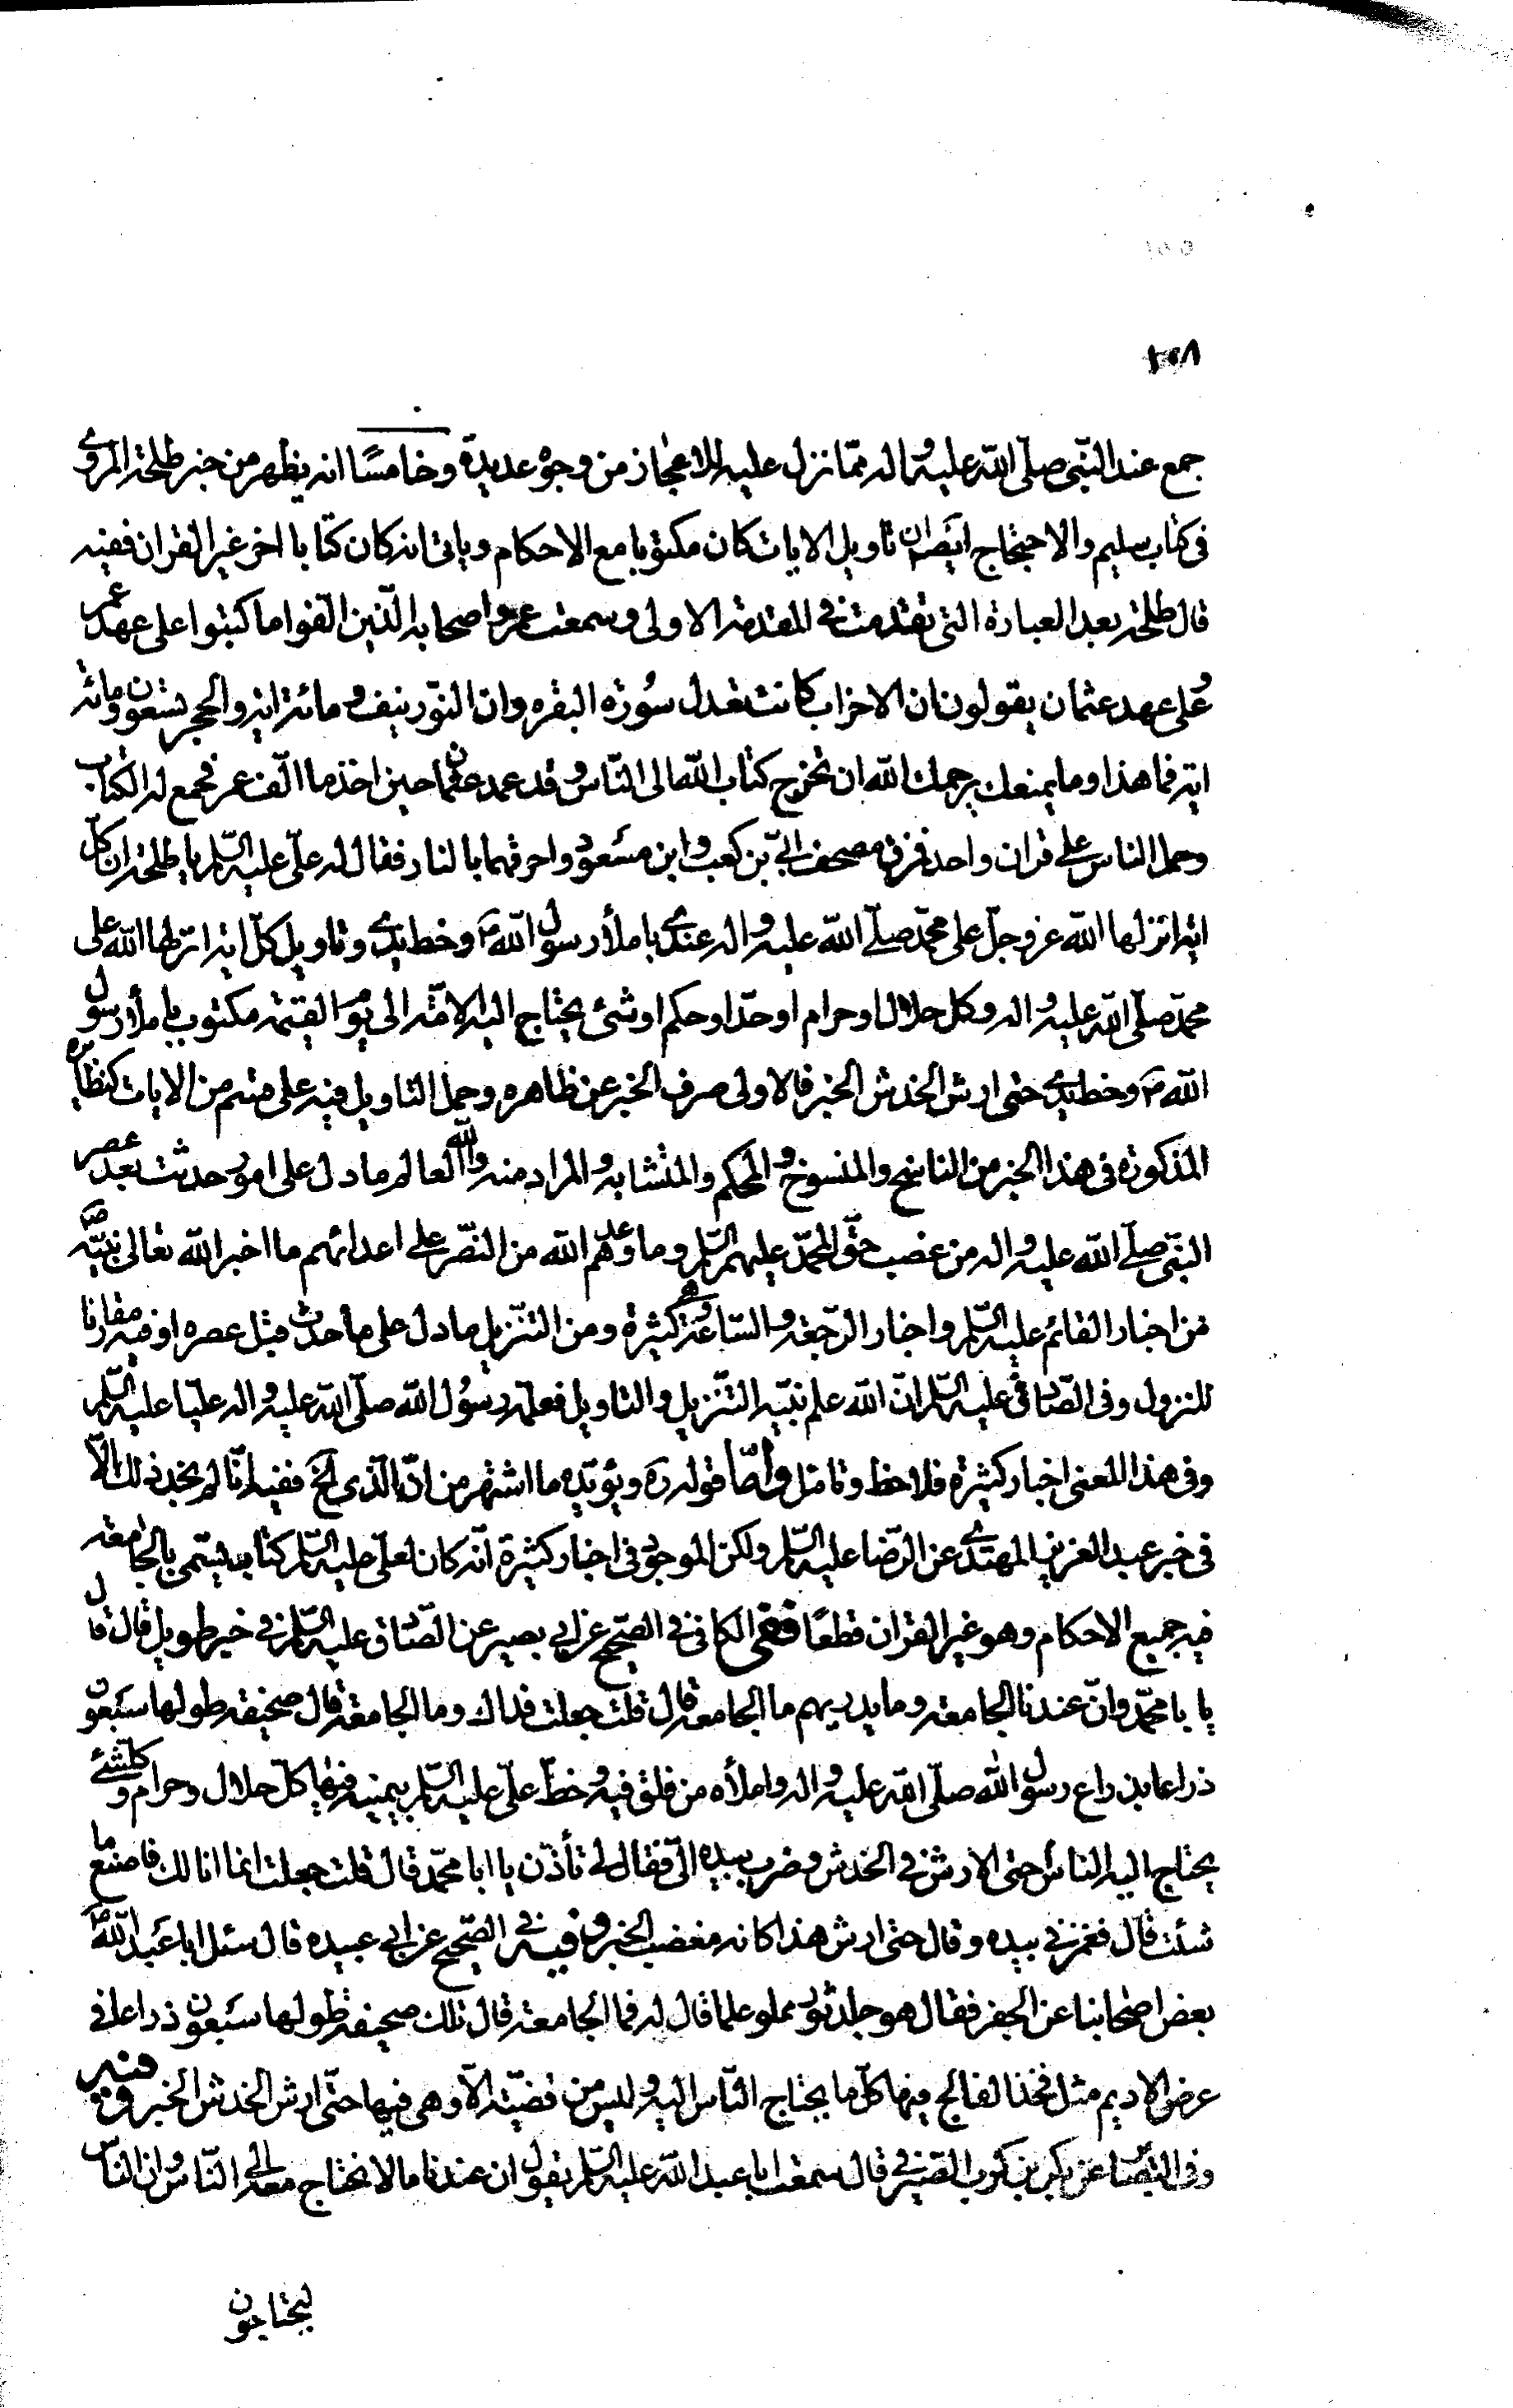 ١٠٨
جمع عند النبي صلى الله عليه واله مما نزل عليه للاعجاز من وجوه عديدة وخامسًا انه يظهر من خبر طلحة المروي
فى كتاب سليم والاحتجاج ايضا ان تاويل الايات كان مكتوبا مع الاحكام وياتى انه كان كتابا اخر غير القران ففيه
قال طلحة بعد العبارة التى تقدمت فى المقدمة الاولى وسمعت عمر واصحابه الذين الفوا ما كتبوا على عهد عمر
وعلى عهد عثمان يقولون ان الاحزاب كانت تعدل سورة البقره وان النور نيف ومائة اية والحجر تسعون ومائة
اية فما هذا وما يمنعك يرحمك الله ان تخرج كتاب الله الى الناس وقد عمد عثمان حين اخذ ما الف عمر فجمع له الكتاب
وحمل الناس على قران واحد فمزق مصحف ابي بن كعب وابن مسعود واحرقهما بالنار فقال له علي عليه السلم يا طلحة ان كل
اية انزلها الله عز وجل على محمد صلى الله عليه واله عندي باملاء رسول الله ص وخط يدي وتاويل كل اية انزلها الله على
محمد صلى الله عليه واله وكل حلال او حرام او حد او حكم او شئ يحتاج اليه الامة الى يوم القيمة مكتوب باملاء رسول
الله ص وخط يدي حتى ارش الخدش الخبر فالاولى صرف الخبر عن ظاهره وحمل التاويل فيه على قسم من الايات كنظايره
المذكورة فى هذا الخبر من الناسخ والمنسوخ والمحكم والمتشابه والمراد منه والله العالم ما دل على امور حدثت بعد عصر
النبى صلى الله عليه واله من غصب حق ال محمد عليهم السلم وما وعدهم الله من النصر على اعدائهم ما اخبر الله تعالى نبيه ص
من اخبار القائم عليه السلم واخبار الرجعة والساعة وهى كثيرة ومن التنزيل ما دل على ما حدث قبل عصره او فيه مقارنا
للنزول وفى الصادقى عليه السلم ان الله علم نبيه التنزيل والتاويل فعلمه رسول الله صلى الله عليه واله عليا عليه السلم
وفى هذا المعنى اخبار كثيرة فلاحظ وتامل واما قوله ره ويؤيده ما اشتهر من ان الذى الخ ففيه انا لم نجد ذلك الا
فى خبر عبد العزيز المهتدي عن الرضا عليه السلم ولكن الموجود فى اخبار كثيرة انه كان لعلي عليه السلم كتاب يسمى بالجامعة
فيه جميع الاحكام وهو غير القران قطعًا ففى الكافى فى الصحيح عن ابي بصير عن الصادق عليه السلم فى خبر طويل قال قال
يا با محمد وان عندنا الجامعة وما يدريهم ما الجامعة قال قلت جعلت فداك وما الجامعة قال صحيفة طولها سبعون
ذراعا بذراع رسول الله صلى الله عليه واله واملأه من فلق فيه وخط علي عليه السلم بيمينه فيها كل حلال وحرام وكل شئ
يحتاج اليه الناس حتى الارش فى الخدش وضرب بيده الي فقال لي تأذن يا ابا محمد قال قلت جعلت انما انا لك فاصنع ما
شئت قال فغمزنى بيده وقال حتى ارش هذا كانه مغضب الخبر وفيه فى الصحيح عن ابى عبيده قال سئل ابا عبد الله ع
بعض اصحابنا عن الجفر فقال هو جلد ثور مملو علما قال له فما الجامعة قال تلك صحيفة طولها سبعون ذراعا فى
عرض الاديم مثل فخذ الفالج فيها كل ما يحتاج الناس اليه وليس من قضية الا وهى فيها حتى ارش الخدش الخبر وفيه
وفى البصائر عن بكر بن كرب الصيرفى قال سمعت ابا عبد الله عليه السلم يقول ان عندنا ما لا نحتاج معه الى الناس وان الناس
ليحتاجون